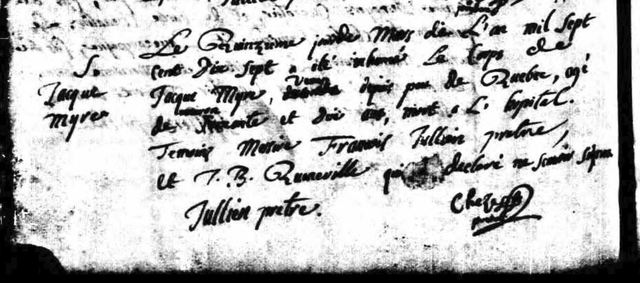 S.
Jaque
Myre
Le Quinzieme jour de Mars de L'an mil sept
cent Dix sept a été inhumé Le Corps de
Jaque Myre, venu depuis peu de Quebec, agé
de Soixante et dix ans, mort a L' hopital.
Temoins Messire Francois Jullien pretre,
et J. B. Quineville qui a declaré ne scavoir signer
Jullien pretre.